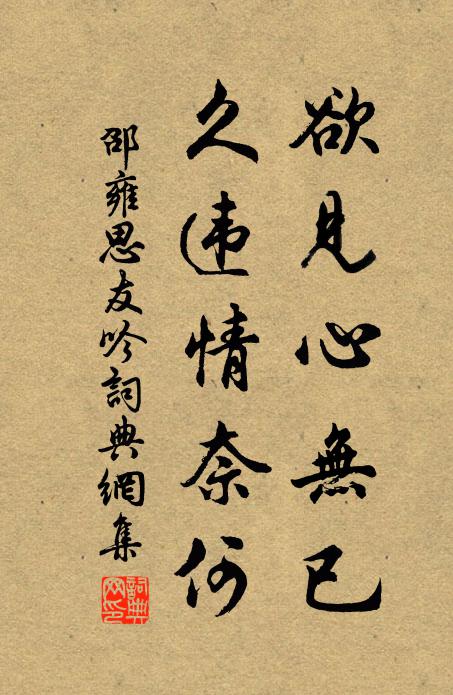 欲見心無已
久违情奈何
邵雍思友吟詞典網集
詞典
网印